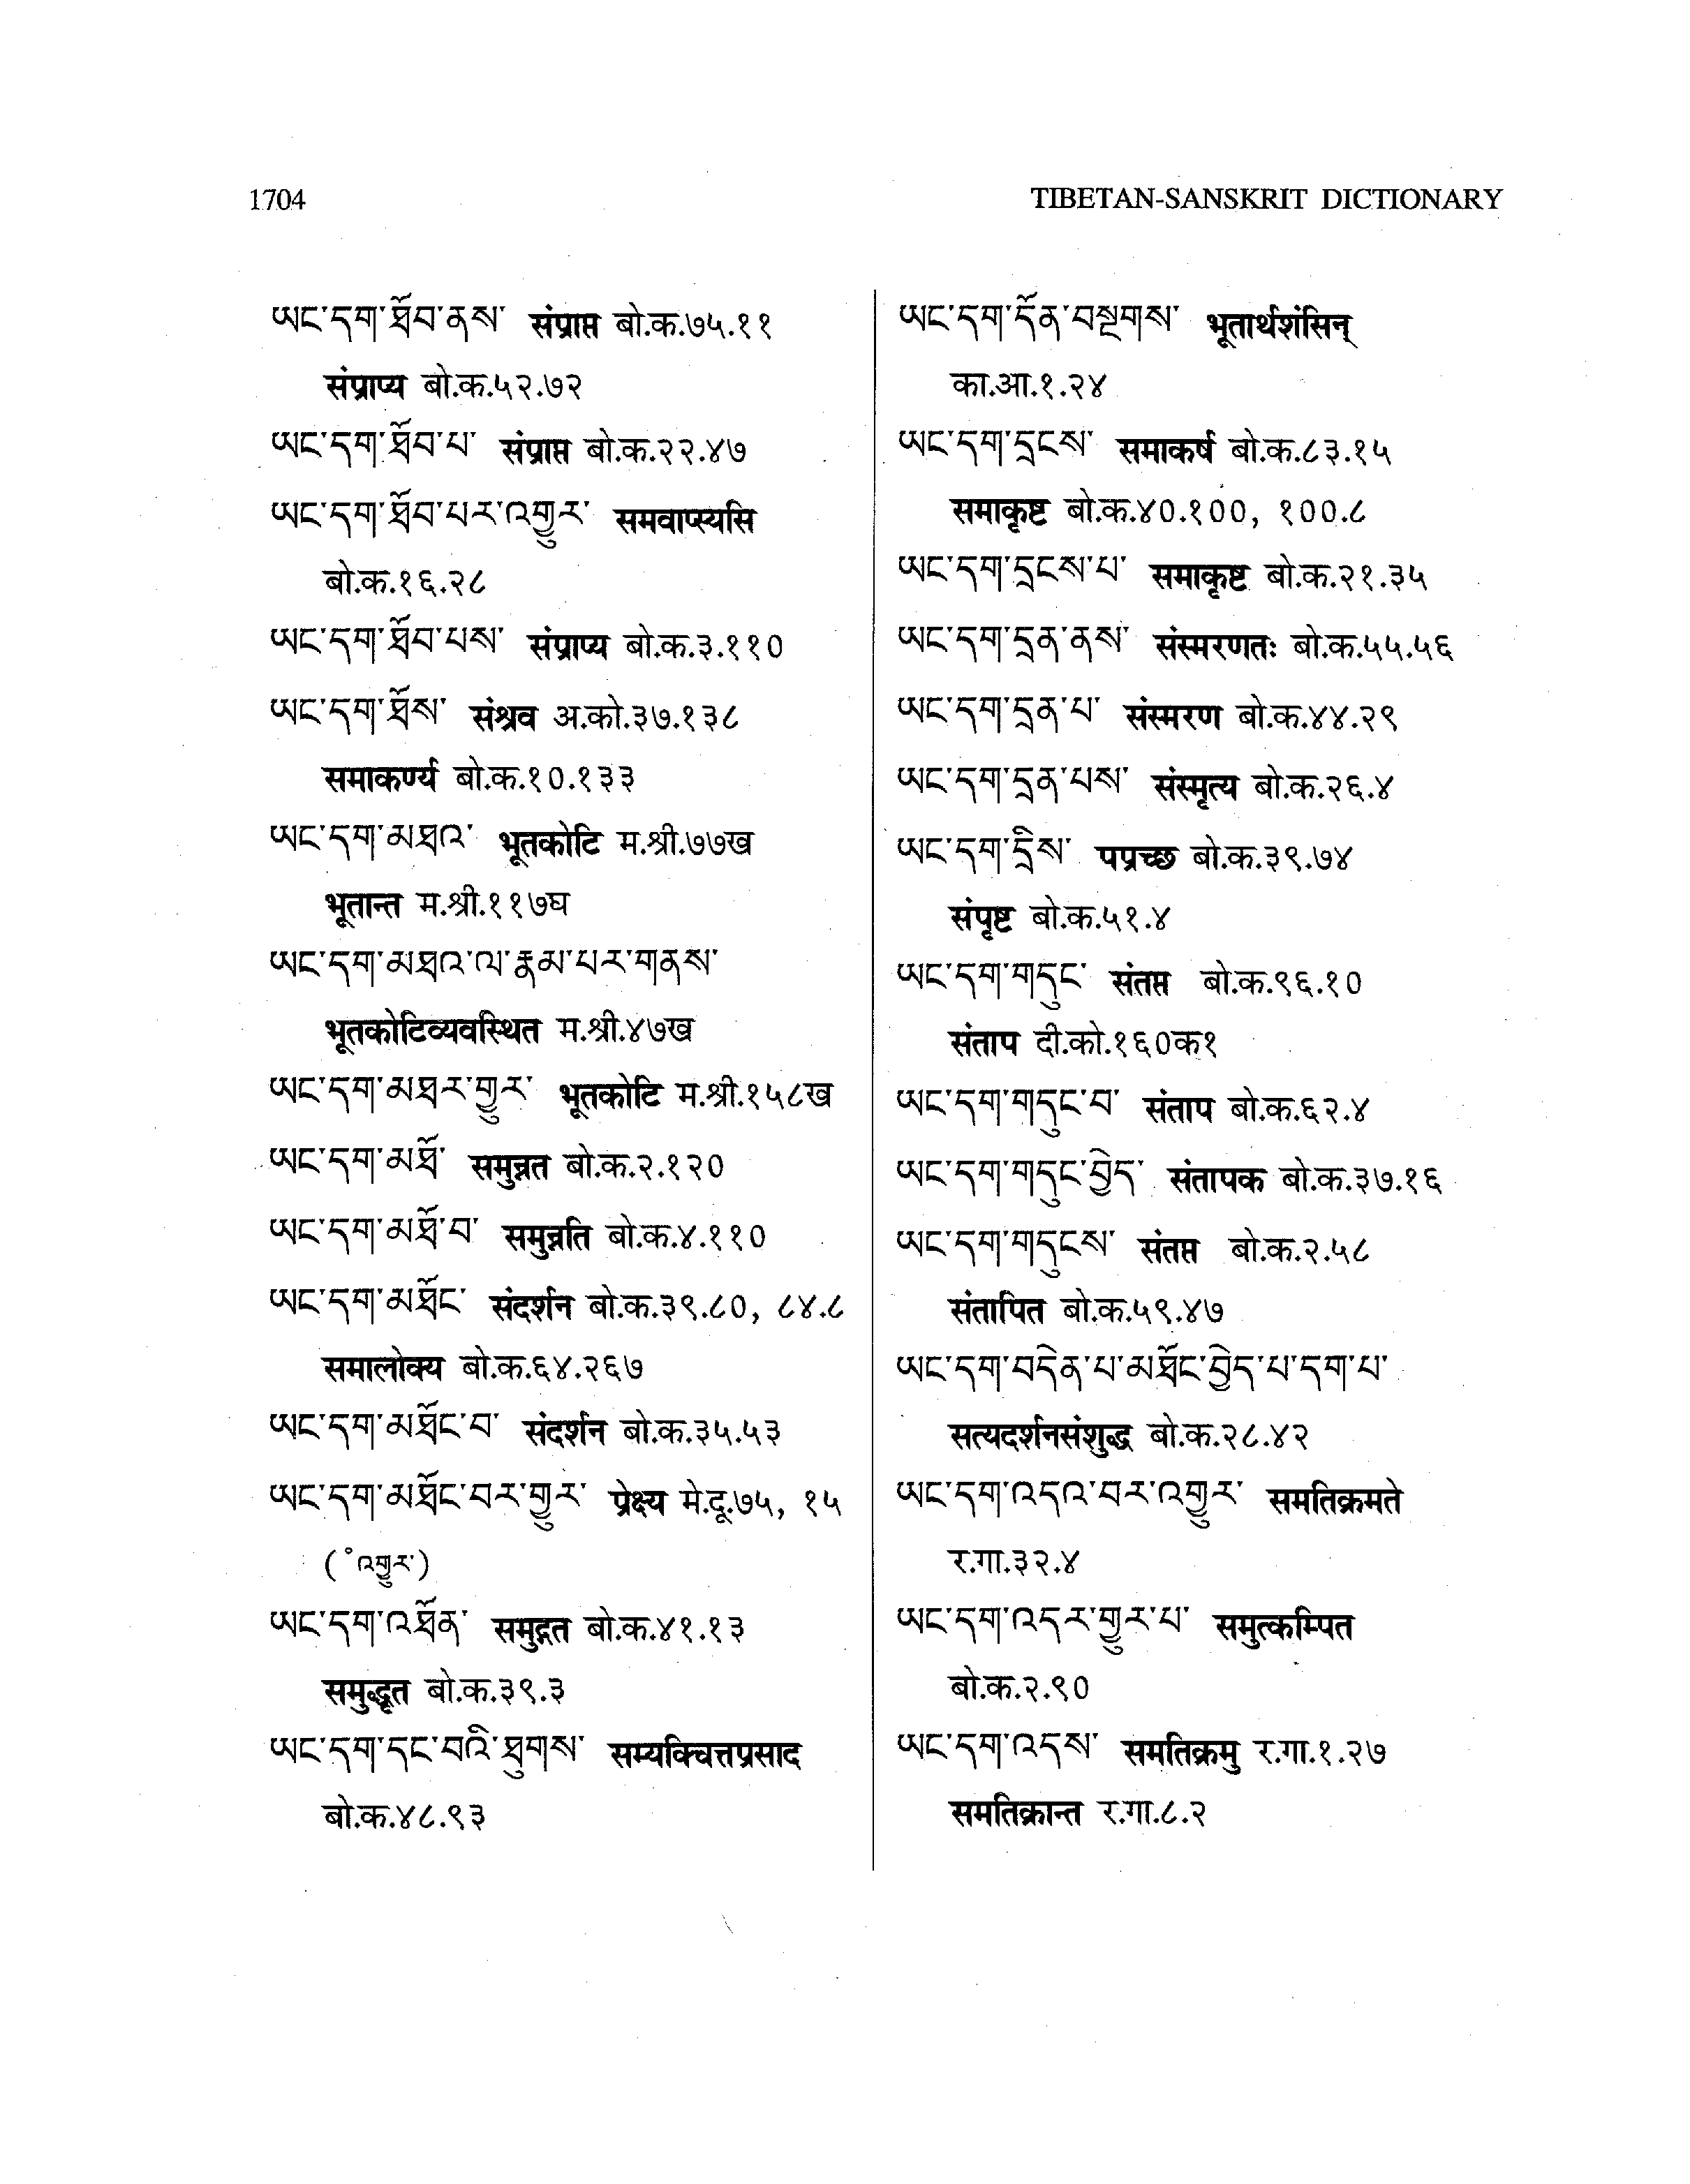 1704
TIBETAN-SANSKRIT DICTIONARY
ཡང་དག་ཐོབ་ནས་ संप्राप्त बो.क.७५.११
संप्राप्य बो.क.५२.७२
ཡང་དག་ཐོབ་པ་ संप्राप्त बो.क.२२.४७
ཡང་དག་ཐོབ་པར་འགྱུར་ समवाप्स्यसि
बो.क.१६.२८
ཡང་དག་ཐོབ་པས་ संप्राप्य बो.क.३.११०
ཡང་དག་ཐོས་ संश्रव अ.को.३७.१३८
समाकर्ण्य बो.क.१०.१३३
ཡང་དག་མཐའ་ भूतकोटि म.श्री.७७ख
भूतान्त म.श्री.११७घ
ཡང་དག་མཐའ་ལ་རྣམ་པར་གནས་
भूतकोटिव्यवस्थित म.श्री.४७ख
ཡང་དག་མཐར་གྱུར་ भूतकोटि म.श्री.१५८ख
ཡང་དག་མཐོ་ समुन्नत बो.क.२.१२०
ཡང་དག་མཐོ་བ་ समुन्नति बो.क.४.११०
ཡང་དག་མཐོང་ संदर्शन बो.क.३९.८०, ८४.८
समालोक्य बो.क.६४.२६७
ཡང་དག་མཐོང་བ་ संदर्शन बो.क.३५.५३
ཡང་དག་མཐོང་བར་གྱུར་ प्रेक्ष्य मे.दू.७५, १५
(˚འགྱུར་)
ཡང་དག་འཐོན་ समुद्गत बो.क.४१.१३
समुद्धृत बो.क.३९.३
ཡང་དག་དང་བའི་ཐུགས་ सम्यक्चित्तप्रसाद
बो.क.४८.९३
ཡང་དག་དོན་བསྔགས་ भूतार्थशंसिन्
का.आ.१.२४
ཡང་དག་དྲངས་ समाकर्ष बो.क.८३.१५
समाकृष्ट बो.क.४०.१००, १००.८
ཡང་དག་དྲངས་པ་ समाकृष्ट बो.क.२१.३५
ཡང་དག་དྲན་ནས་ संस्मरणतः बो.क.५५.५६
ཡང་དག་དྲན་པ་ संस्मरण बो.क.४४.२९
ཡང་དག་དྲན་པས་ संस्मृत्य बो.क.२६.४
ཡང་དག་དྲིས་ पप्रच्छ बो.क.३९.७४
संपृष्ट बो.क.५१.४
ཡང་དག་གདུང་ संतप्त बो.क.९६.१०
संताप दी.को.१६०क१
ཡང་དག་གདུང་བ་ संताप बो.क.६२.४
ཡང་དག་གདུང་བྱེད་ संतापक बो.क.३७.१६
ཡང་དག་གདུངས་ संतप्त बो.क.२.५८
संतापित बो.क.५९.४७
ཡང་དག་བདེན་པ་མཐོང་བྱེད་པ་དག་པ་
सत्यदर्शनसंशुद्ध बो.क.२८.४२
ཡང་དག་འདའ་བར་འགྱུར་ समतिक्रमते
र.गा.३२.४
ཡང་དག་འདར་གྱུར་པ་ समुत्कम्पित
बो.क.२.९०
ཡང་དག་འདས་ समतिक्रमु र.गा.१.२७
समतिक्रान्त र.गा.८.२